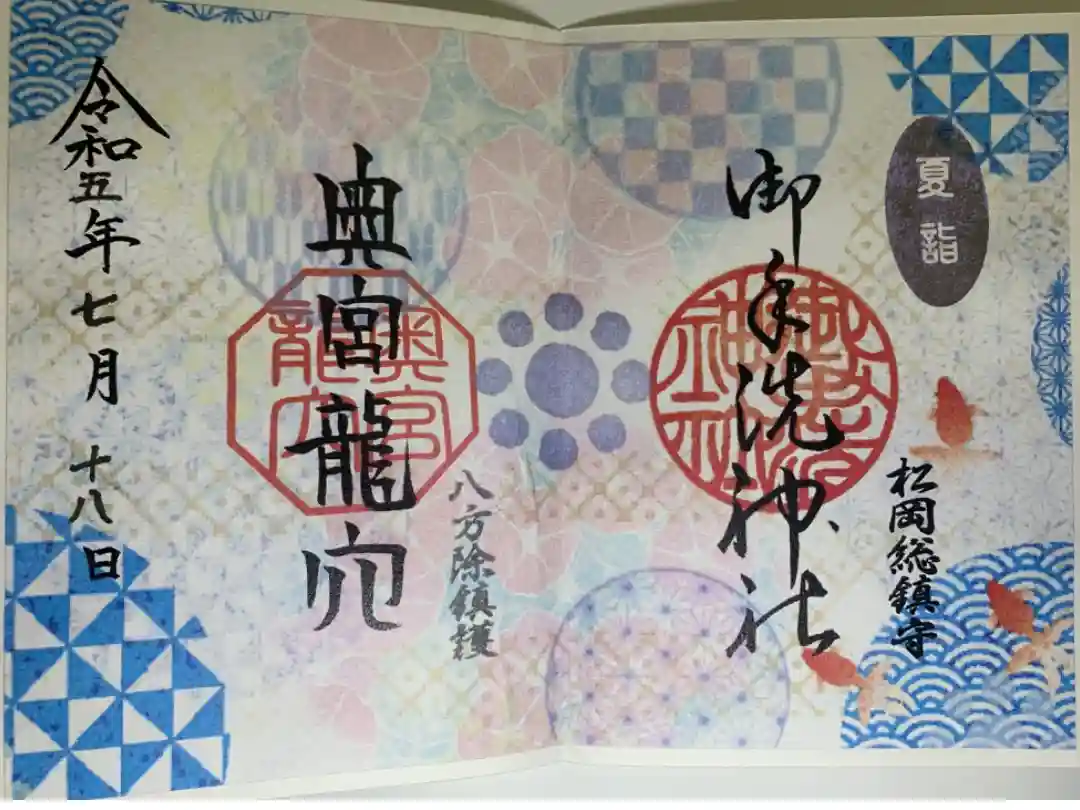 夏詣
松岡総鎮守
御手洗神社
八方除鎮護
奥宮龍穴
奥宮龍穴
令和五年七月十八日